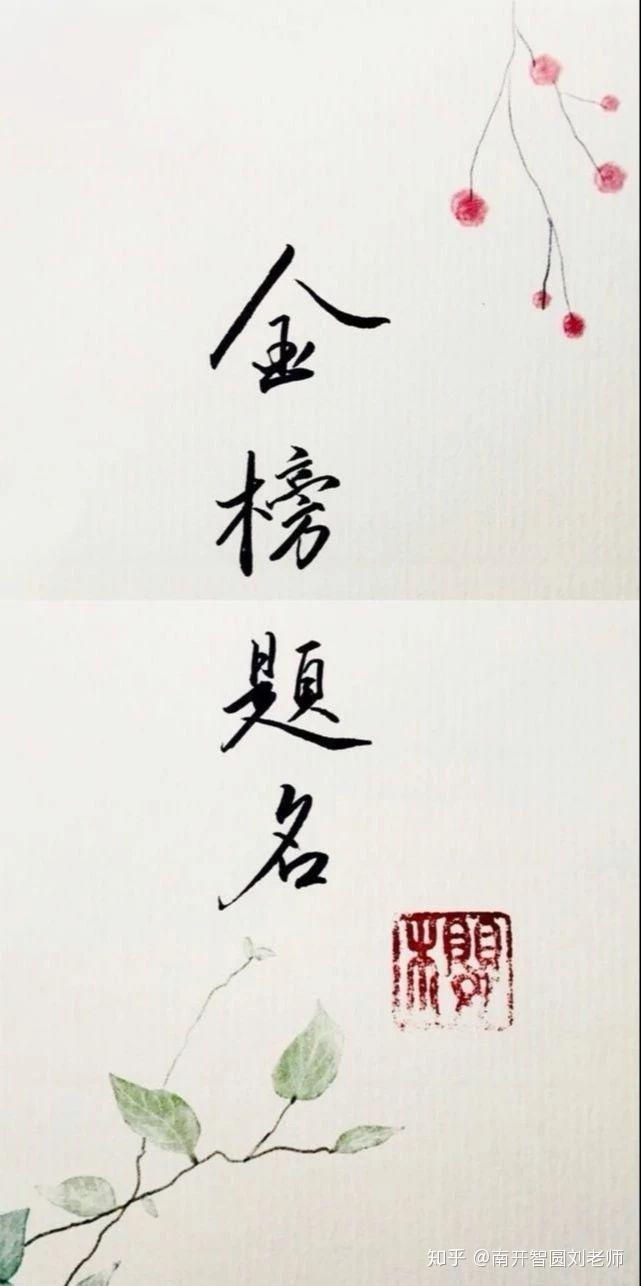 金榜题名
櫻
知乎 @南开智圆刘老师